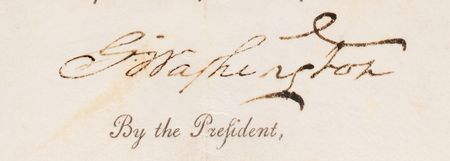 G:Washington
By the Preſident,